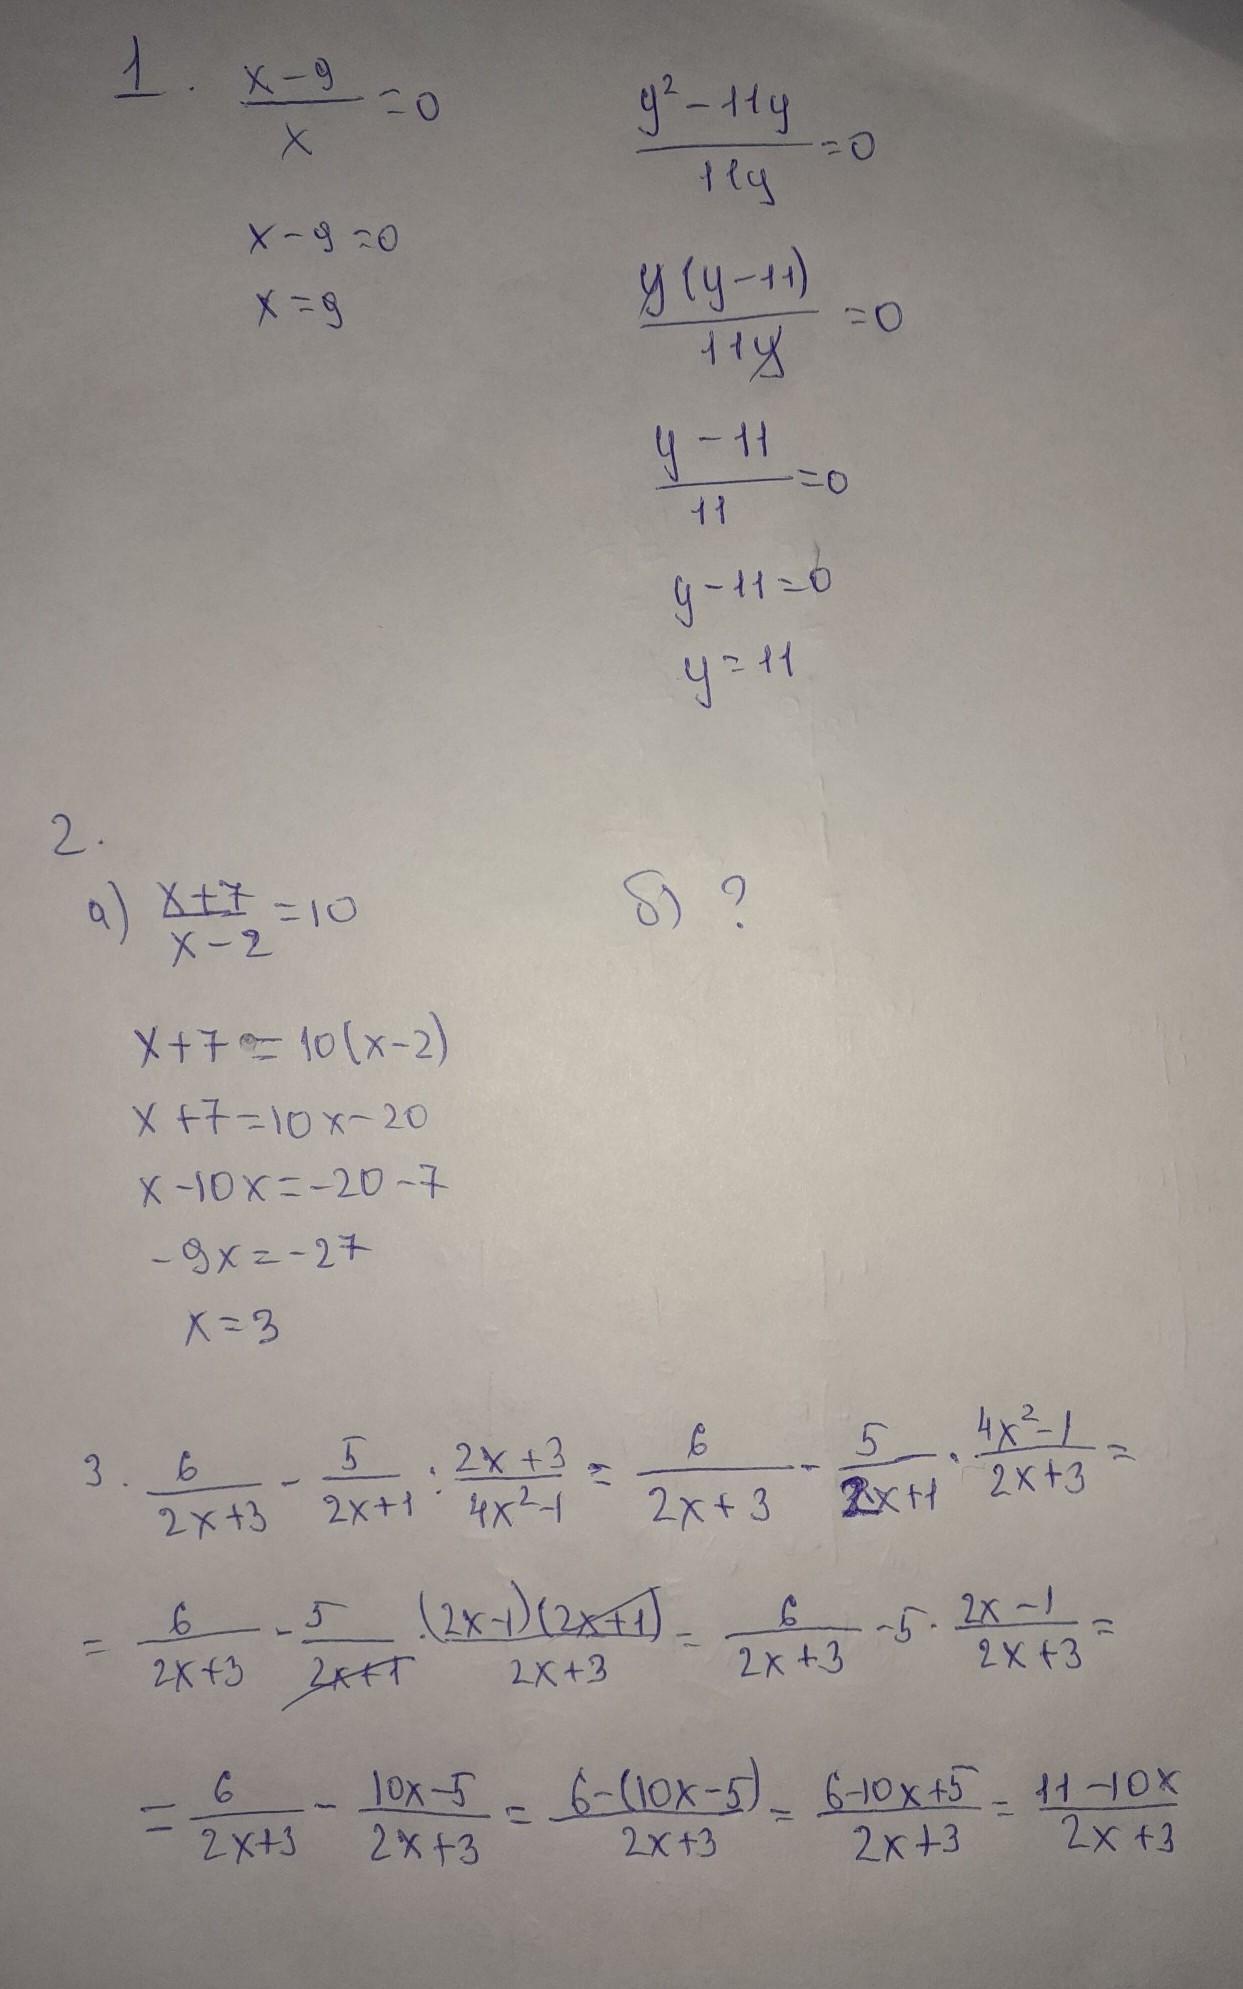 1. (x-9)/x = 0
x-9=0
x=9
(y²-11y)/(11y) = 0
y(y-11)/(11y) = 0
(y-11)/11 = 0
y-11=0
y=11
2.
а) (x+7)/(x-2) = 10
x+7=10(x-2)
x+7=10x-20
x-10x=-20-7
-9x=-27
x=3
б) ?
3. 6/(2x+3) - 5/(2x+1) : (2x+3)/(4x²-1) = 6/(2x+3) - 5/(2x+1) · (4x²-1)/(2x+3) =
= 6/(2x+3) - 5/(2x+1) · (2x-1)(2x+1)/(2x+3) = 6/(2x+3) - 5 · (2x-1)/(2x+3) =
= 6/(2x+3) - (10x-5)/(2x+3) = (6-(10x-5))/(2x+3) = (6-10x+5)/(2x+3) = (11-10x)/(2x+3)